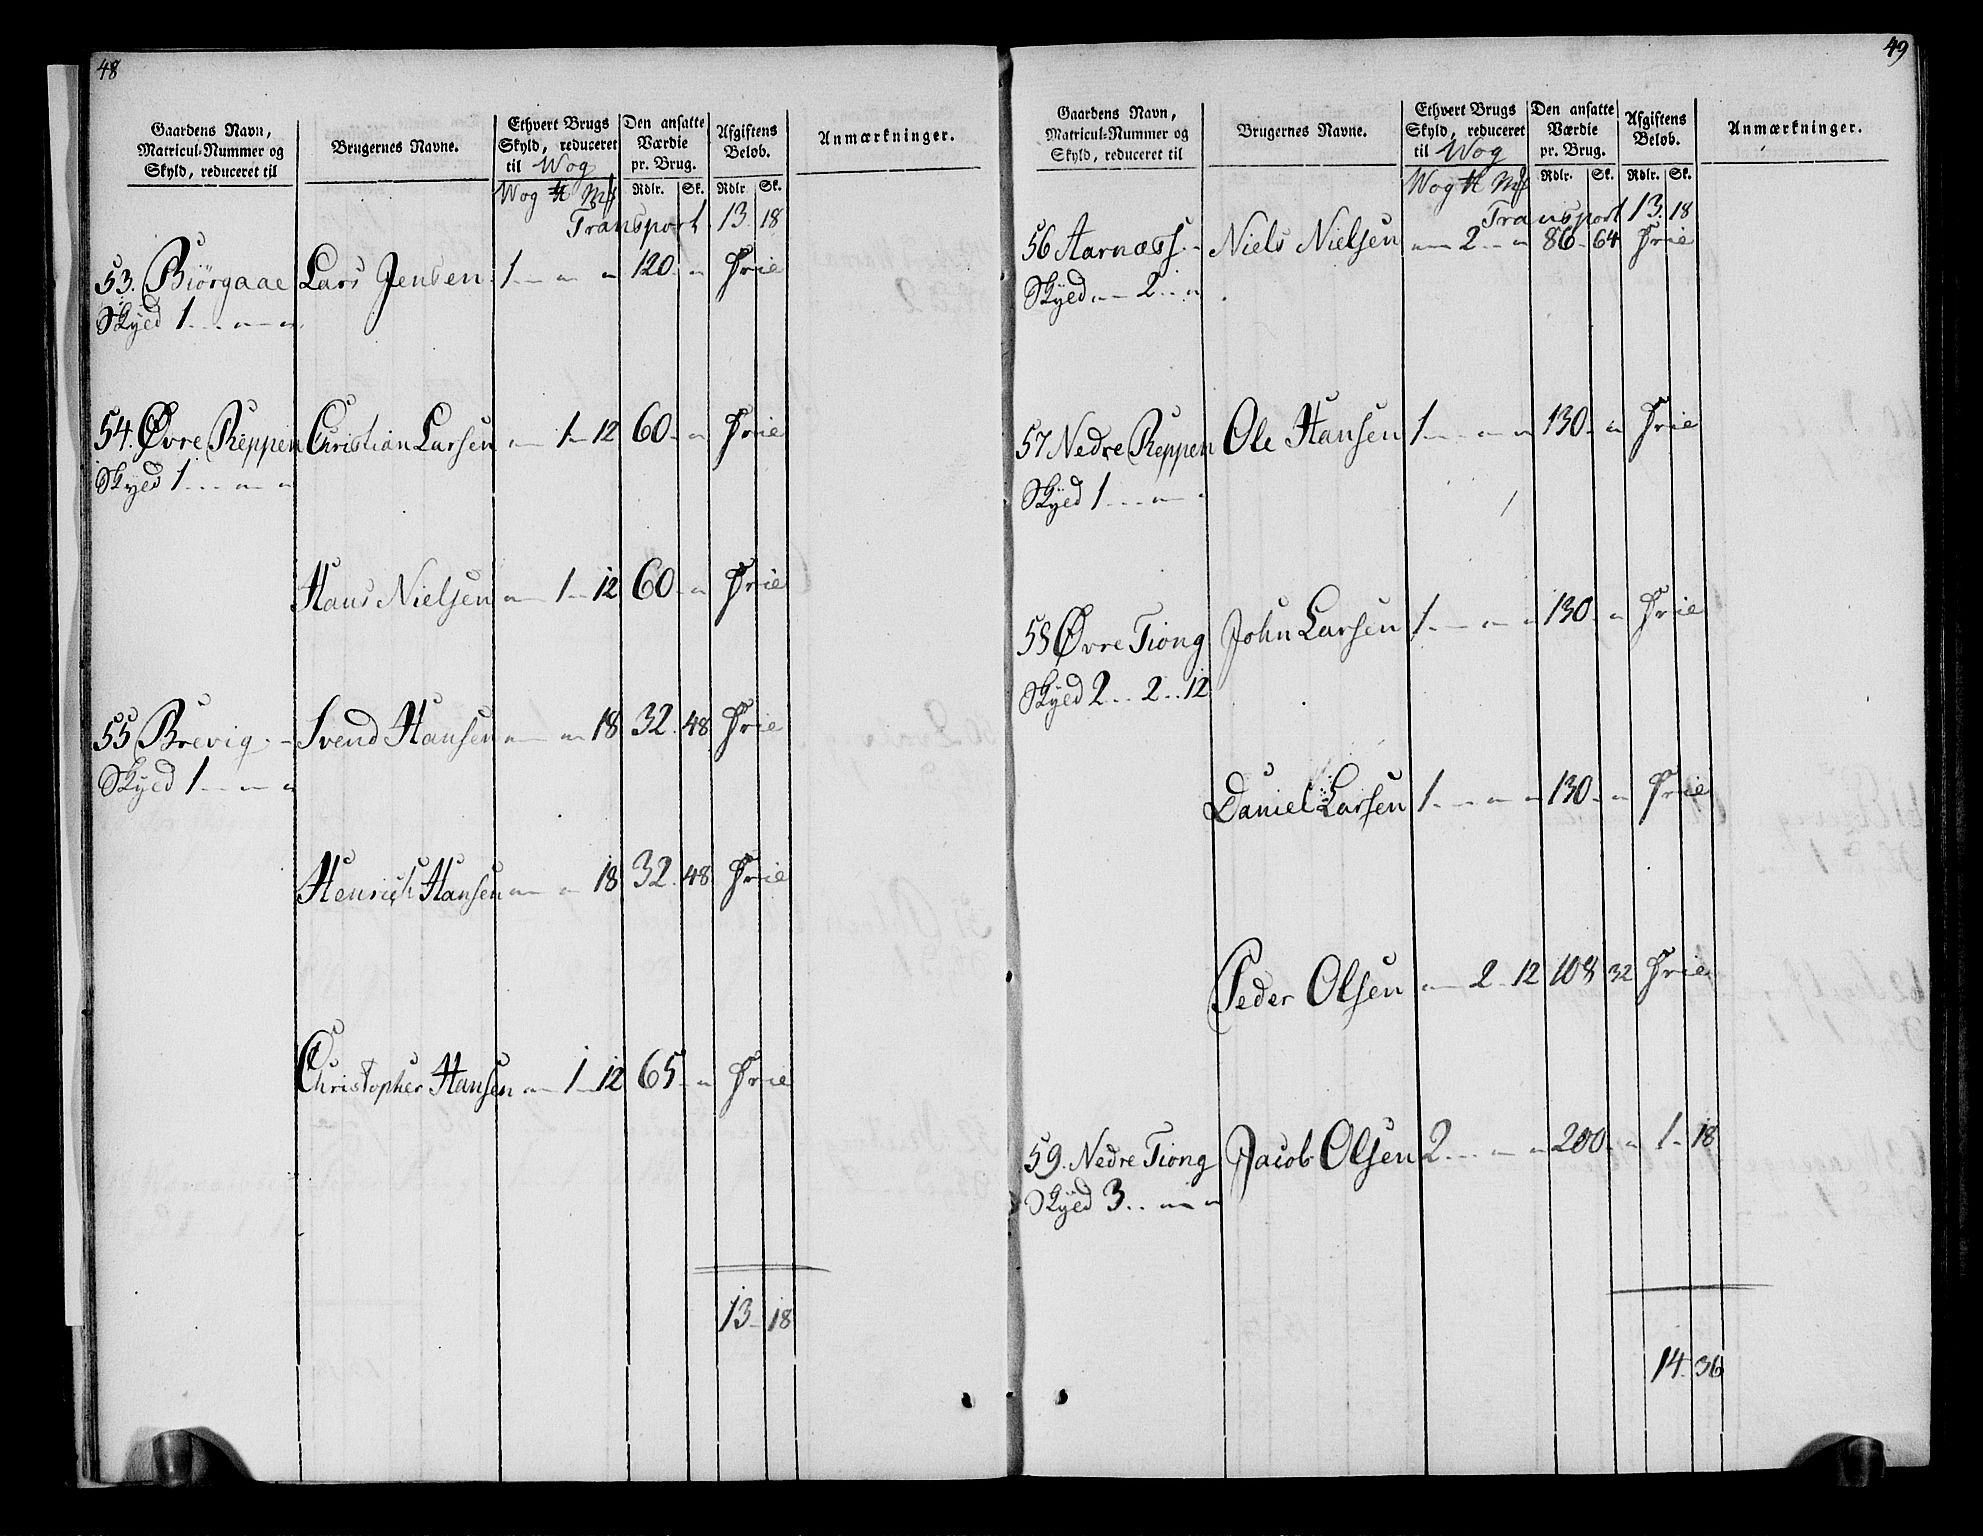 48
Gaardens Navn, Matricul-Nummer og Skyld, reduceret til
Brugernes Navne.
Ethvert Brugs Skyld, reduceret til Wog
Den ansatte Værdie pr. Brug.
Afgiftens Beløb.
Anmærkninger.
Wog ℔ Mk Rdlr. Sk. Rdlr Sk.
Transport. 13. 18
53. Biörgaae Lars Jensen. 1 — " " 120. " Frie
Skyld 1 ... " — "
54. Øvre Reppen Christian Larsen " — 1 — 12 60 — " Frie
Skyld 1 ... " — "
Hans Nielsen " — 1 — 12 60 — " Frie
55 Brevig — Svend Hansen " — " 18 32. 48 Frie
Skyld 1 — " — "
Henrich Hansen " — " 18 32. 48 Frie
Christopher Hansen " — 1 — 12 65 — " Frie
13 — 18
49
Gaardens Navn, Matricul-Nummer og Skyld, reduceret til
Brugernes Navne.
Ethvert Brugs Skyld, reduceret til Wog
Den ansatte Værdie pr. Brug.
Afgiftens Beløb.
Anmærkninger.
Wog ℔ Mk Rdlr. Sk. Rdlr. Sk.
Transport 13. 18
56 Aarnæss — Niels Nielsen " — 2 — " 86 — 64 Frie
Skyld " — 2 ... "
57 Nedre Reppen Ole Hansen 1 — " — " 130 — " Frie
Skyld 1 ... " — "
58 Øvre Tiong John Larsen 1 — " — " 130 — " Frie
Skyld 2 .. 2 .. 12
Daniel Larsen 1 — " — " 130 — " Frie
Peder Olsen " — 2 — 12 108 32 Frie
59. Nedre Tiong Jacob Olsen 2 ... " — " 200 — " 1 — 18
Skyld 3 .. " — "
14. 36